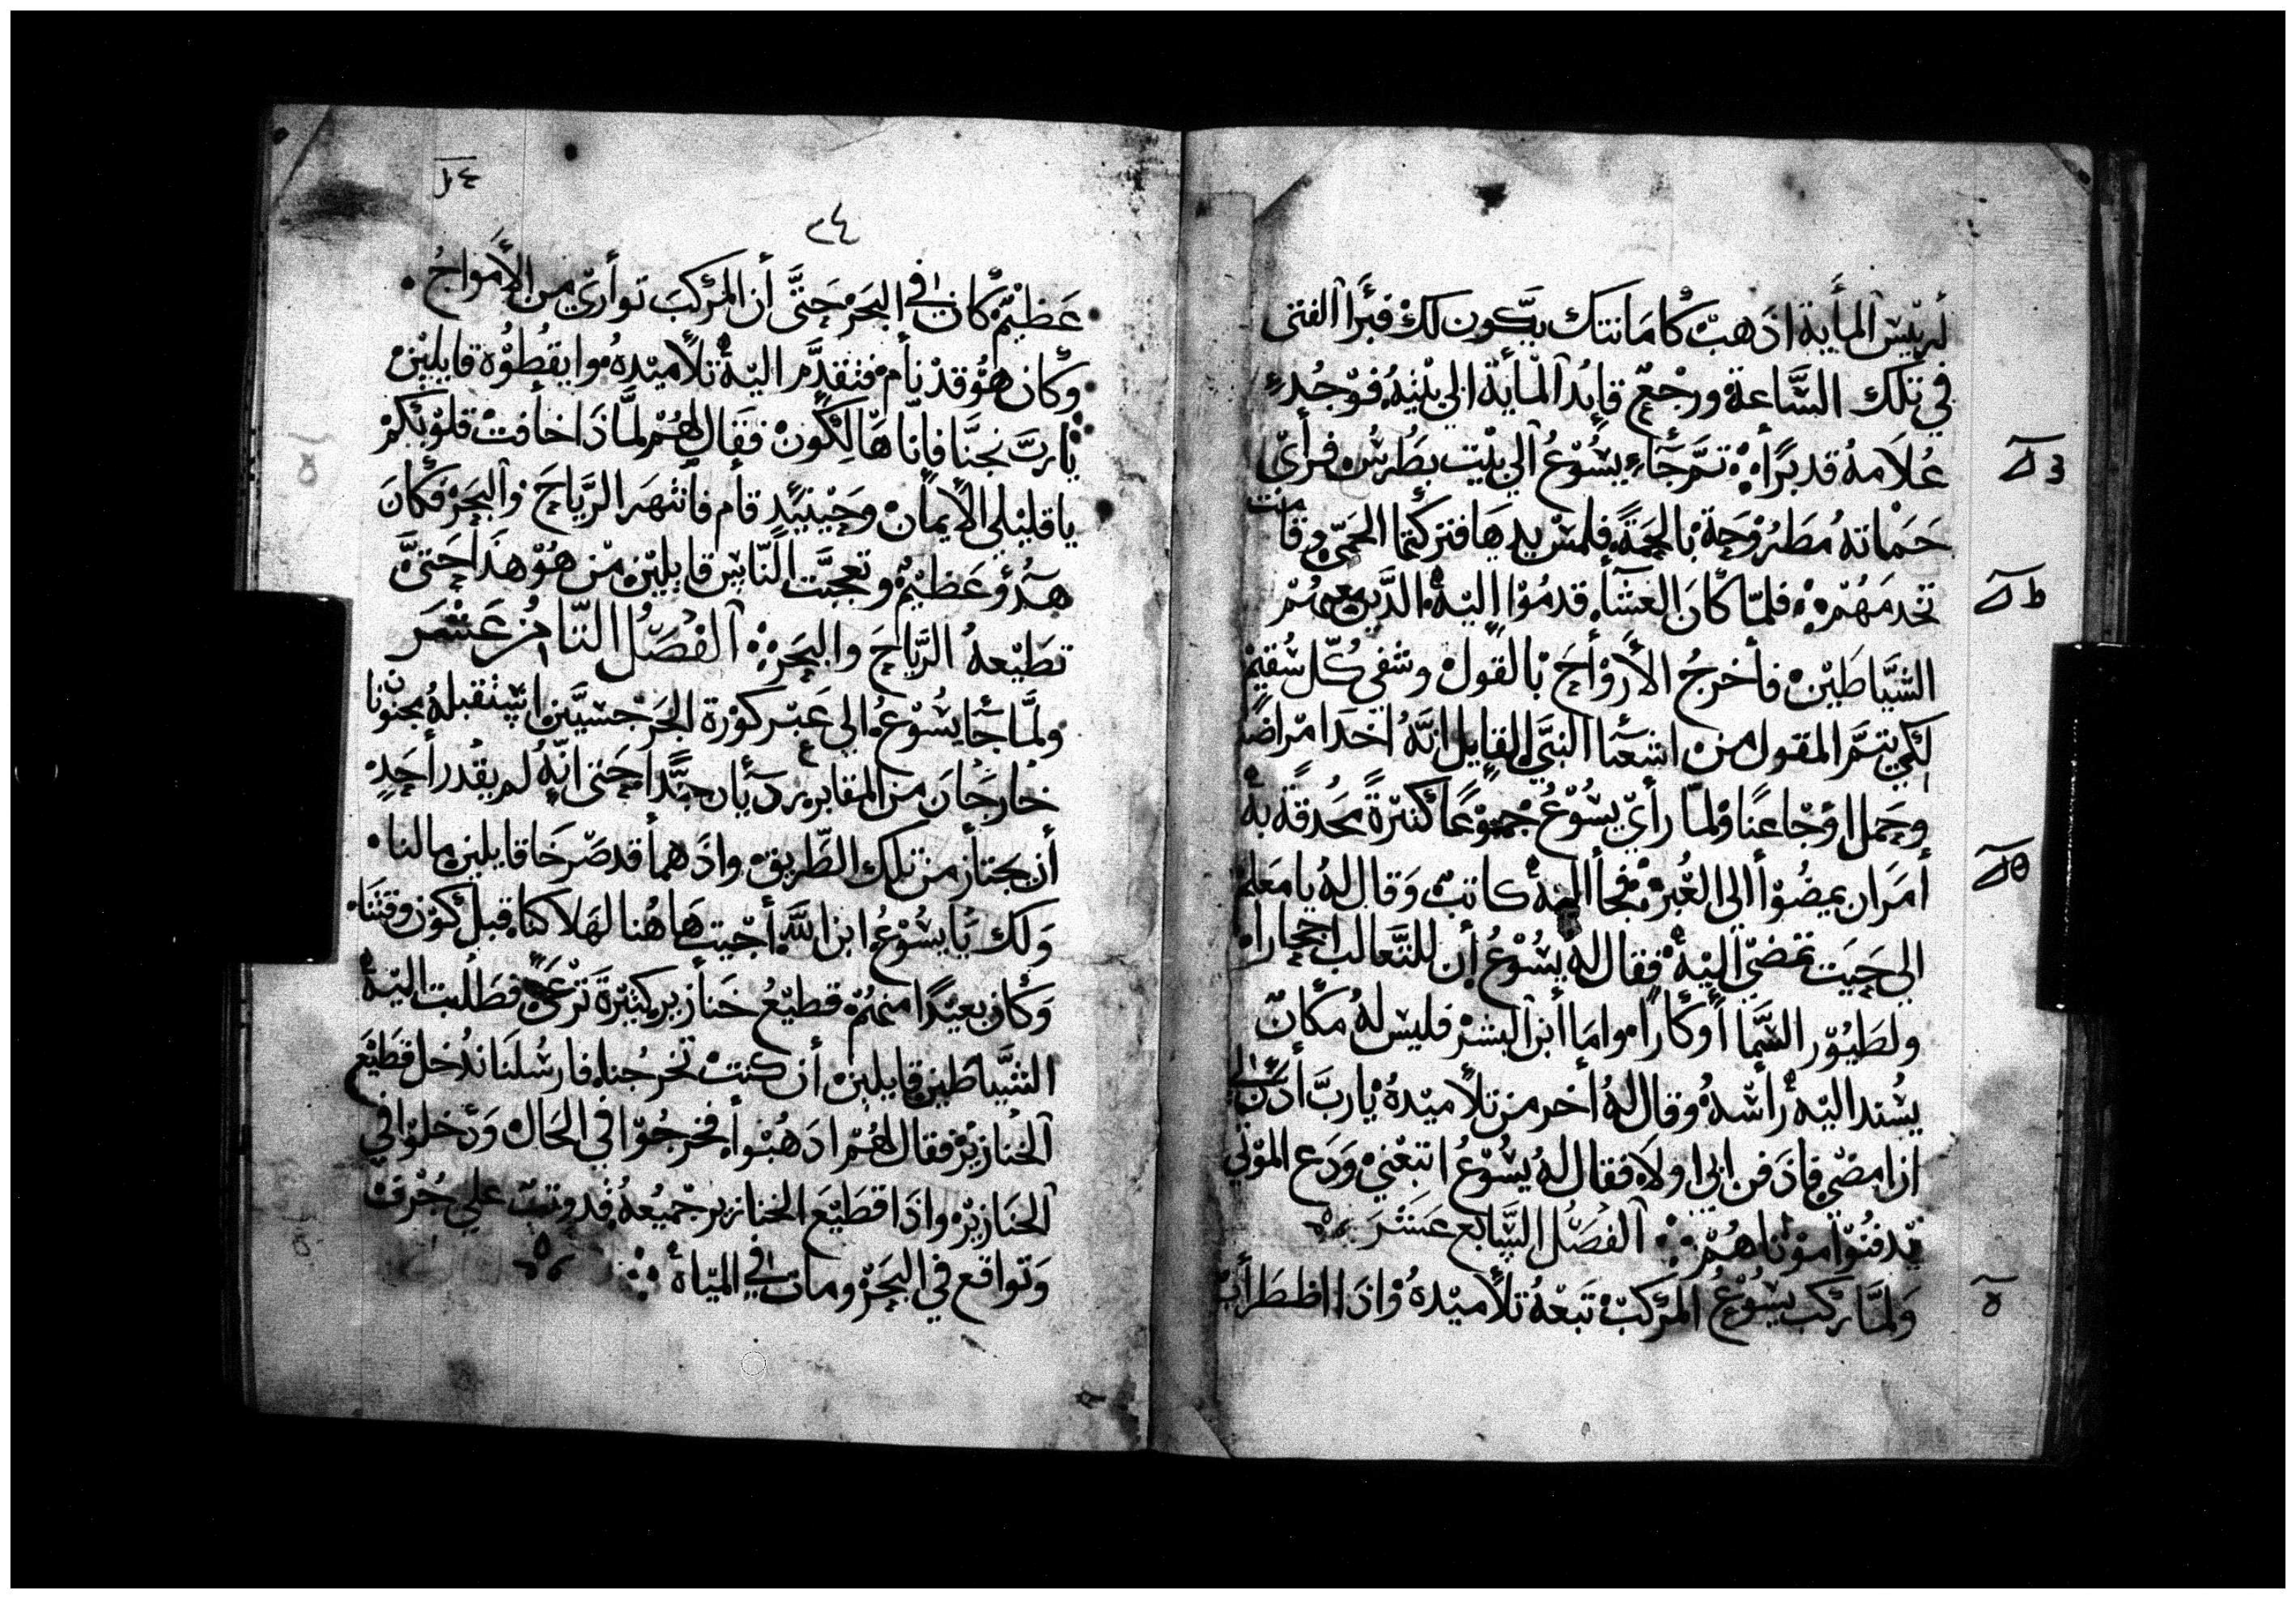 لريّيس المأية اذهب كامانتك يكون لك فبرأ الفتى
في تلك الساعة ورجع قايد المأية الي بيته فوجد
غلامه قد برا ثم جاء يسوع الي بيت بطرس فرأي
حماته مطروحة بالحمة فلمس يدها فتركتها الحمي وقامت
تخدمهم فلما كان العشا قدموا اليه الذين معهم
الشياطين فأخرج الأرواح بالقول وشفي كل سقيم
لكي يتم المقول من اشعيا النبي القايل انه اخد امراضا
وحمل اوجاعنا ولما رأي يسوع جموعا كتيرة محدقة به
أمر ان يمضوا الي العبر فجأ اليه كاتب وقال له يا معلم
الي حيت تمضي اليه فقال له يسوع أن للتعالب احجارا
ولطيور السما أوكارا واما أبن البشر فليس له مكان
يسند اليه رأسه وقال له أخر من تلاميده يارب أدن لي
ان امضي فادفن ابي اولا فقال له يسوع اتبعني ودع الموتي
يدفنوا موتاهم الفصل السابع عشر
ولما ركب يسوع المركب تبعه تلاميده واذا اظطراب
٣٤
عظيم كان في البحر حتى أن المركب تواري من الأمواج
وكان هو قد نام فتقدم اليه تلاميده وايقظوة قايلين
يارب نجنا فاننا هالكون فقال لهم لماذا خافت قلوبكم
يا قليلي الايمان وحينيد قام فانتهر الرياح والبحر فكان
هدؤ عظيم وتعجبت الناس قايلين من هو هذا حتى
تطيعه الرياح والبحر الفصل التامن عشر
ولما جا يسوع الي عبر كورة الجرجسيين استقبله مجنونان
خارجان من المقابر رديان جدا حتى انه لم يقدر أحد
أن يجتاز من تلك الطريق واذ هما قد صرخا قايلين مالنا
ولك يا يسوع ابن الله أجيت هاهنا لهلاكنا قبل كون وقتنا
وكان بعيدا منهم قطيع خنازير كتيرة ترعى فطلبت اليه
الشياطين قايلين أن كنت تخرجنا فارسلنا ندخل قطيع
الخنازير فقال لهم ادهبوا فخرجوا في الحال ودخلوا في
الخنازير واذا قطيع الخنازير جميعه قد وتب علي جرف
وتواقع في البحر ومات في المياه